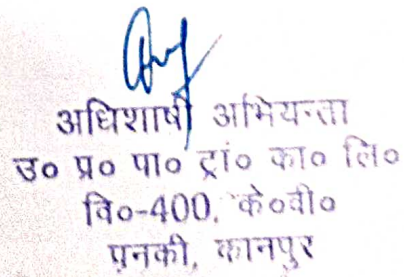 अधिशाषी अभियन्ता
उ० प्र० पा० ट्रां० का० लि०
वि०-400, के०वी०
पनकी, कानपुर